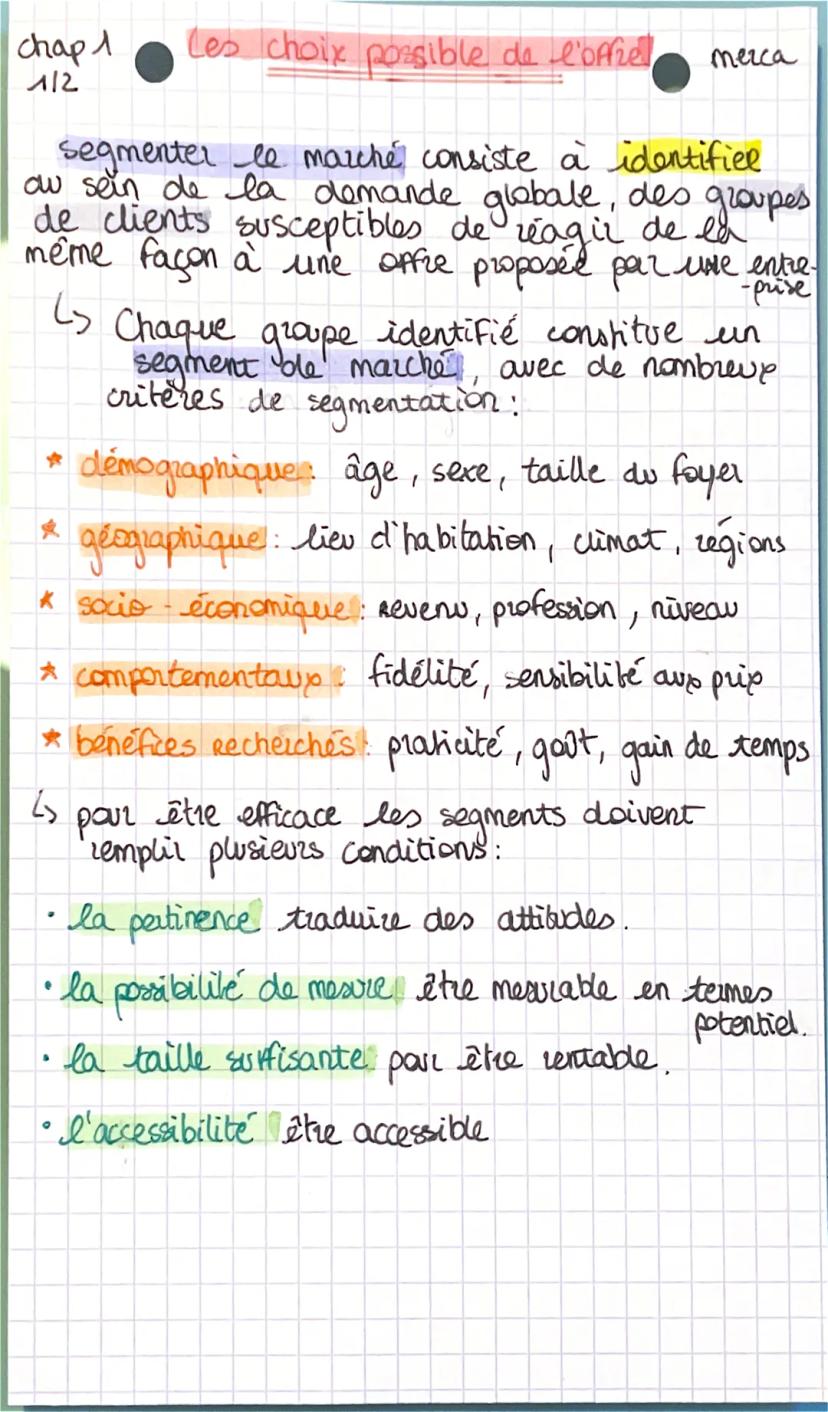 chap 1
1/2
Les choix possible de l'offre
merca
segmenter le marché consiste à identifier
au sein de la demande globale, des groupes
de clients susceptibles de réagir de la
même façon à une offre proposée par une entre-
-prise
↳ Chaque groupe identifié constitue un
segment de marché, avec de nombreux
critères de segmentation :
* démographique : âge, sexe, taille du foyer
* géographique : lieu d'habitation, climat, régions
* socio-économique : revenu, profession, niveau
* comportementaux : fidélité, sensibilité aux prix
* bénéfices recherchés : praticité, goût, gain de temps
↳ pour être efficace les segments doivent
remplir plusieurs conditions :
· la pertinence traduire des attitudes.
· la possibilité de mesure être mesurable en termes
potentiel.
· la taille suffisante pour être rentable.
· l'accessibilité être accessible